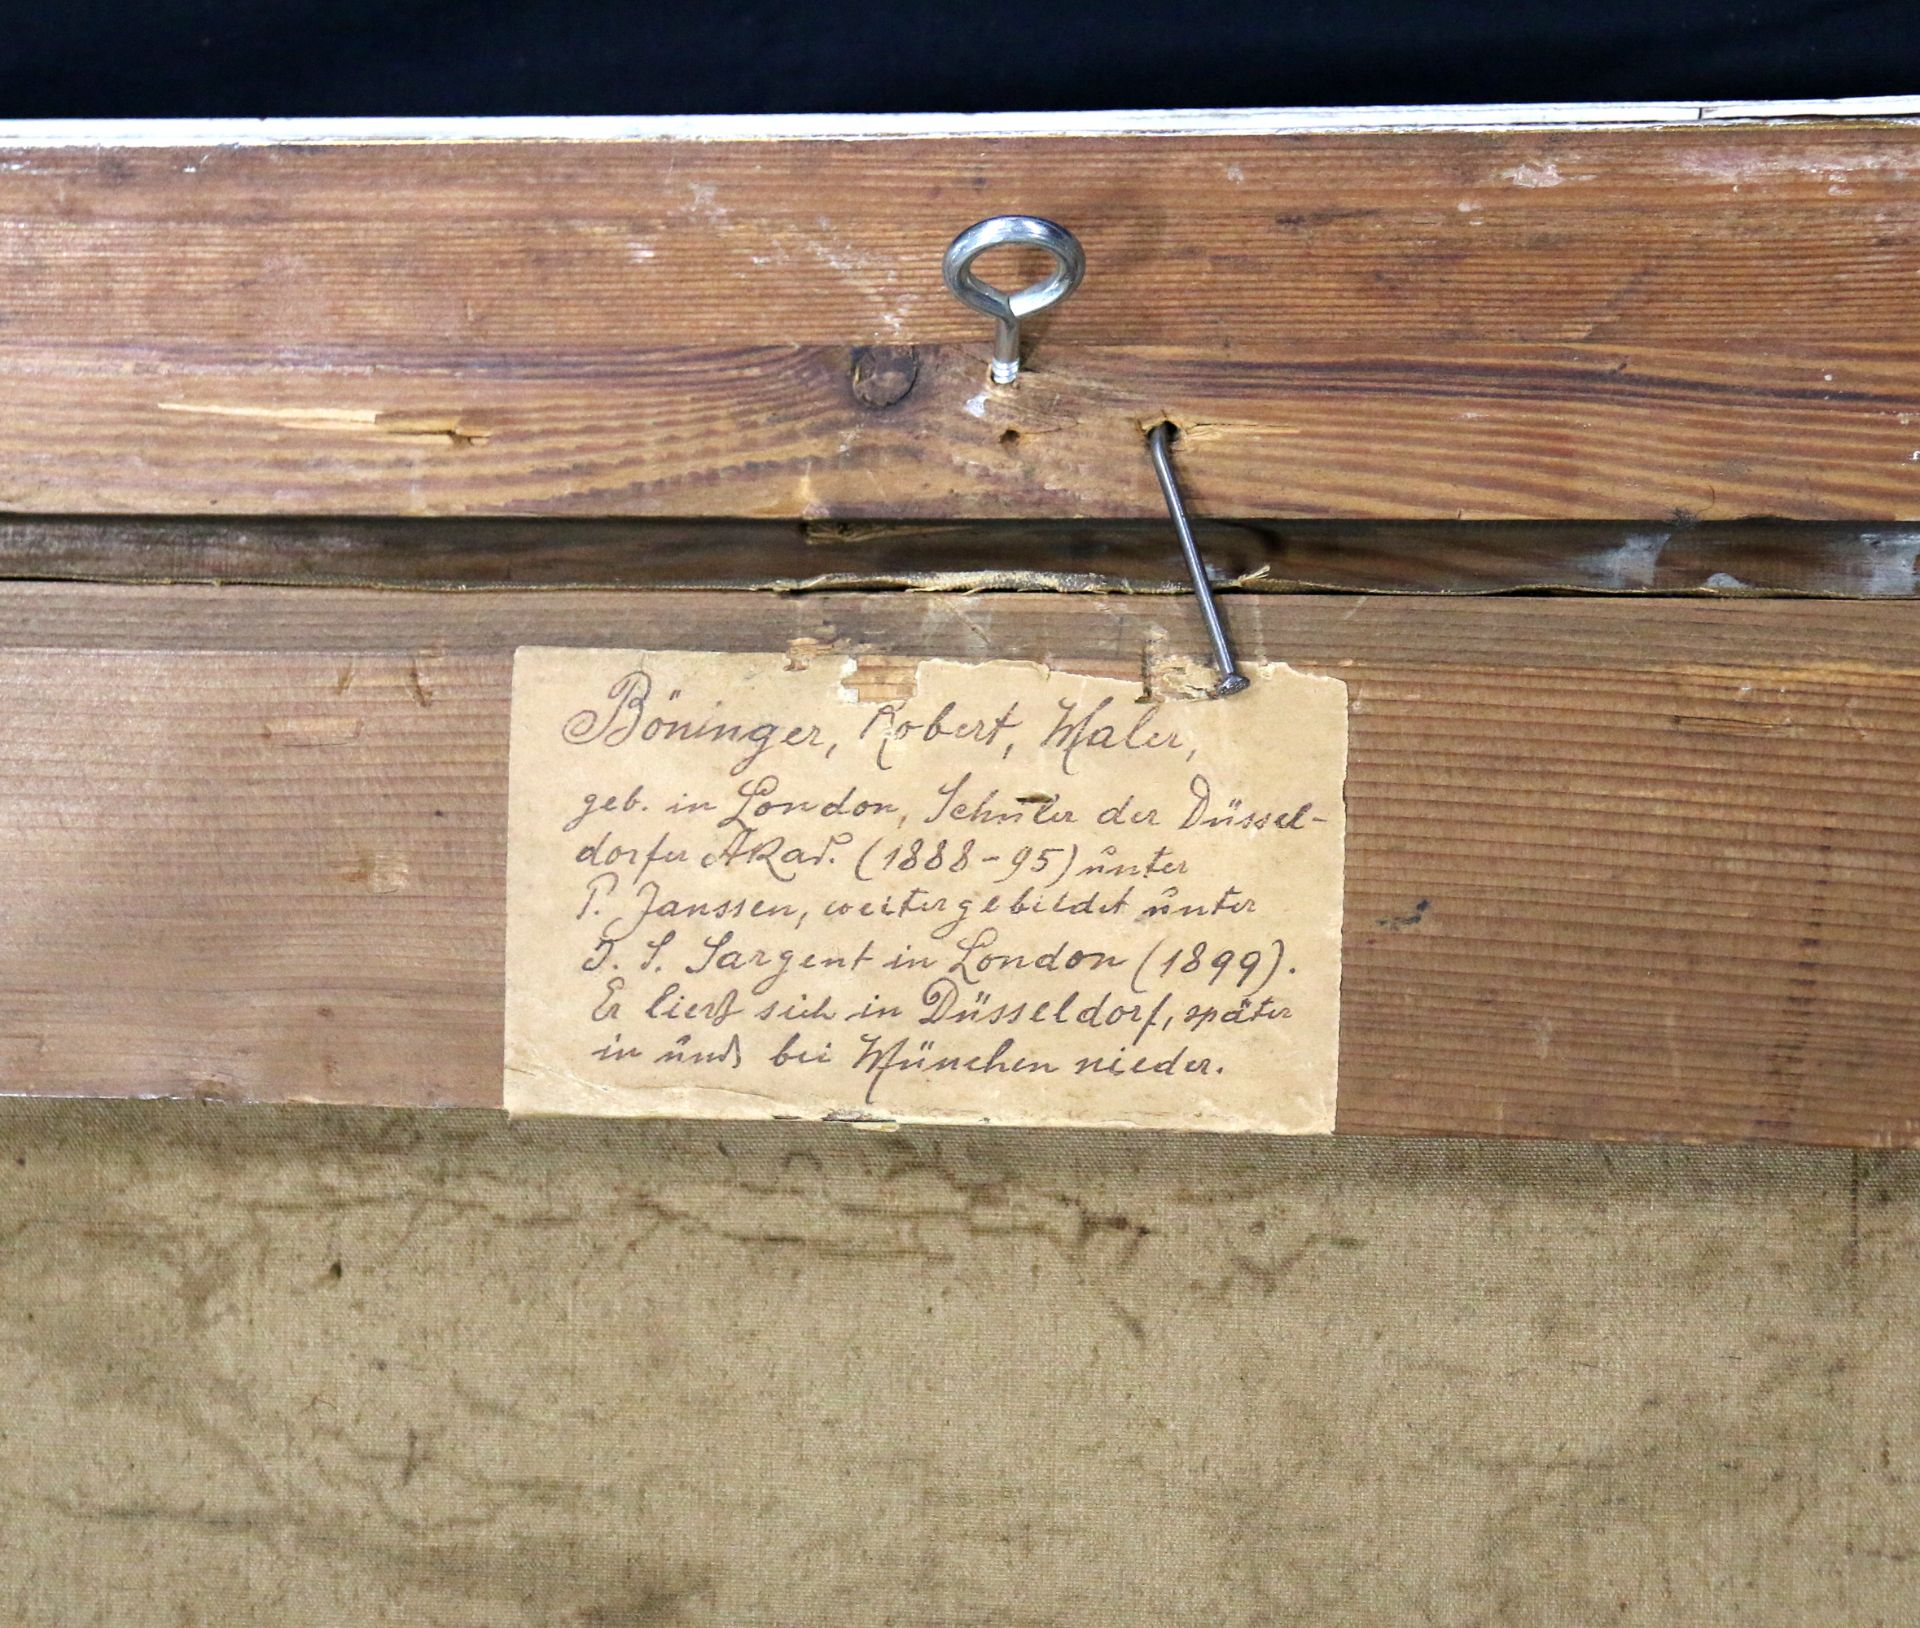 Böninger, Robert, Maler,
geb. in London, Schüler der Düssel-
dorfer Akad. (1888-95) unter
P. Janssen, weitergebildet unter
J. S. Sargent in London (1899).
Er ließ sich in Düsseldorf, später
in und bei München nieder.